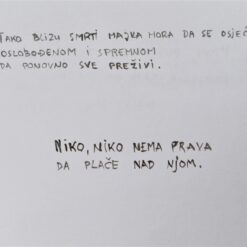 TAKO BLIZU SMRTI MAJKA MORA DA SE OSJEĆ
OSLOBOĐENOM I SPREMNOM
DA PONOVNO SVE PREŽIVI.
NIKO, NIKO NEMA PRAVA
DA PLAČE NAD NJOM.